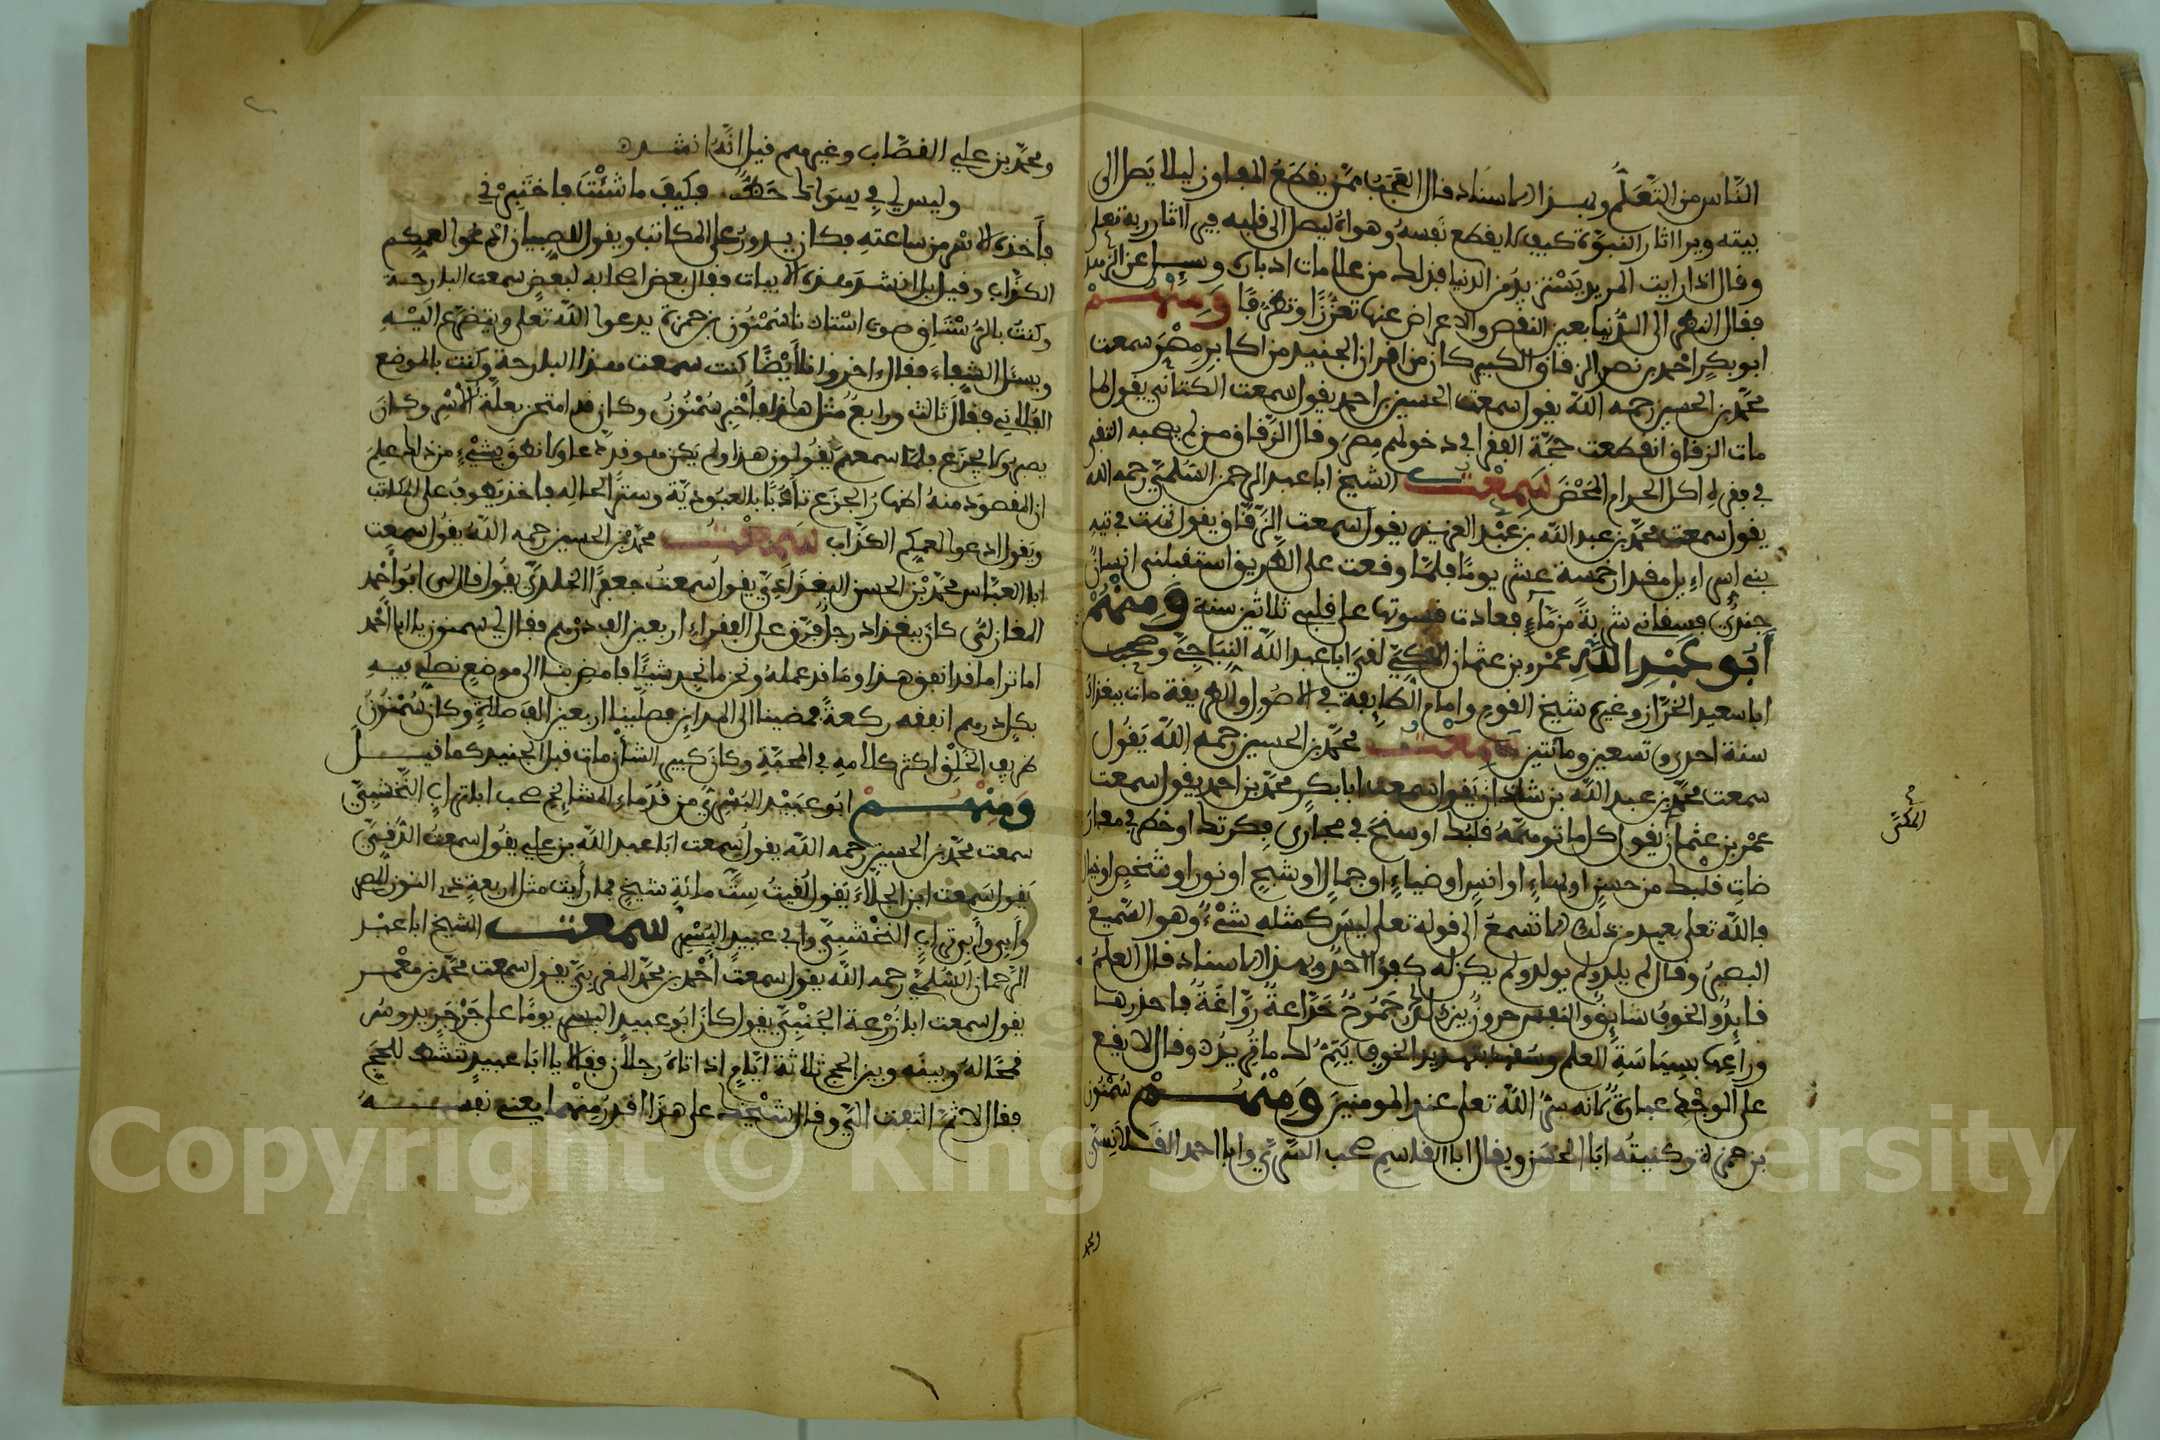 الناس من التعلم وبهذا الاسناد قال العجب ممن يقطع المفاوز ليلا يصل الى
بيته ويرا اثار النبوة كيف لا يقطع نفسه وهواه ليصل الى قلبه فيرى اثار ربه تعلى
وقال اذا رايت المريد يستزيد من الدنيا فذلك من علامات ادباره وسيل عن الزهد
فقال النظر الى الدنيا بعين النقص والاعراض عنها تعززا وتظرفا ومنهم
ابو بكر احمد بن نصر الزقاق الكبير كان من اقران الجنيد من اكابر مصر سمعت
محمد بن الحسين رحمه الله يقول سمعت الحسين بن احمد يقول سمعت الكتاني يقول لما
مات الزقاق انقطعت حجة الفقرا في دخولهم مصر وقال الزقاق من لم يصحبه التقى
في فقره اكل الحرام المحض سمعت الشيخ ابا عبد الرحمن السلمي رحمه الله
يقول سمعت محمد بن عبد الله بن عبد العزيز يقول سمعت الزقاق يقول تهت في تيه
بني اسراءيل مقدار خمسة عشر يوما فلما وقعت على الطريق استقبلني انسان
جندي فسقاني شربة من ماء فعادت قسوتها على قلبي ثلاثين سنة ومنهم
ابو عبد الله عمرو بن عثمان المكي لقي ابا عبد الله النباجي وصحب
ابا سعيد الخراز وغيره شيخ القوم وامام الطايفة في الاصول والطريقة مات ببغداد
سنة احدى وتسعين ومائتين سمعت محمد بن الحسين رحمه الله يقول
سمعت محمد بن عبد الله بن شاذان يقول سمعت ابا بكر محمد بن احمد يقول سمعت
عمرو بن عثمان يقول كل ما توهمه قلبك او سنح في مجاري فكرتك او خطر في معارضات
قلبك من حسن او بهاء او انس او ضياء او جمال او شبح او نور او شخص او خيال
فالله تعلى بعيد من ذلك الا تسمع الى قوله تعلى ليس كمثله شيء وهو السميع
البصير وقال لم يلد ولم يولد ولم يكن له كفؤا احد وبهذا الاسناد قال العلم
قايد والخوف سايق والنفس حرون بين ذلك جموح خداعة رواغة فاحذرها
وراعها بسياسة العلم وسقها بتهديد الخوف يتم لك ما تريد وقال لا يقع
على الوجد عبارة لانه سر الله تعلى عند المومنين ومنهم سمنون
بن حمزة وكنيته ابا الحسن ويقال ابا القاسم صحب السري وابا احمد القلانسي
المكي
ومحمد بن علي القصاب وغيرهم قيل انه انشد
وليس لي في سواك حظ فكيف ما شئت فاختبرني
فأخذه الاسر من ساعته فكان يدور على المكاتب ويقول للصبيان ادعوا لعمكم
الكذاب وقيل بل انشد هذه الابيات فقال بعض اصحابه لبعض سمعت البارحة
وكنت بالرستاق صوت استاذنا سمنون بن حمزة يدعوا الله تعلى ويتضرع اليه
ويسئل الشفاء فقال اخر وانا أيضا كنت سمعت هذا البارحة وكنت بالموضع
الفلاني فقال ثالث ورابع مثل هذا فأخبر سمنون وكان قد امتحن بعلة الأسر وكان
يصبر ولا يجزع فلما سمعهم يقولون هذا ولم يكن هو قد دعا ولا نطق بشيء من ذلك علم
ان المقصود منه اظهار الجزع تأدبا بالعبودية وسترا لحاله فاخذ يطوف على المكاتب
ويقول ادعوا لعمكم الكذاب سمعت محمد بن الحسين رحمه الله يقول سمعت
ابا العباس محمد بن الحسن البغدادي يقول سمعت جعفرا الخلدي يقول قال لي ابو احمد
المغازلي كان ببغداد رجل فرق على الفقراء اربعين الف درهم فقال لي سمنون يا ابا احمد
اما ترا ما قد انفق هذا وما قد عمله ونحن ما نجد شيئا فامض بنا الى موضع نصلي فيه
بكل درهم انفقه ركعة فمضينا الى المداين فصلينا اربعين الف صلاة وكان سمنون
ظريف الخلق اكثر كلامه في المحبة وكان كبير الشأن مات قبل الجنيد كما قيل
ومنهم ابو عبيد البسري من قدماء المشايخ صحب ابا تراب النخشبي
سمعت محمد بن الحسين رحمه الله يقول سمعت ابا عبد الله بن علي يقول سمعت الدقي
يقول سمعت ابن الجلاء يقول لقيت ست مائة شيخ فما رأيت مثل اربعة ذي النون المصري
وأبي وأبي تراب النخشبي وابي عبيد البسري سمعت الشيخ ابا عبد
الرحمان السلمي رحمه الله يقول سمعت أحمد بن محمد المغربي يقول سمعت محمد بن معمر
يقول سمعت ابا زرعة الجنبي يقول كان ابو عبيد البسري يوما على جرجر يدوس
قمحا له وبينه وبين الحج ثلاثة ايام اذ اتاه رجلان فقالا يا ابا عبيد تنشط للحج
فقال لا ثم التفت الي وقال شيخك على هذا اقدر منهما يعني نفسه